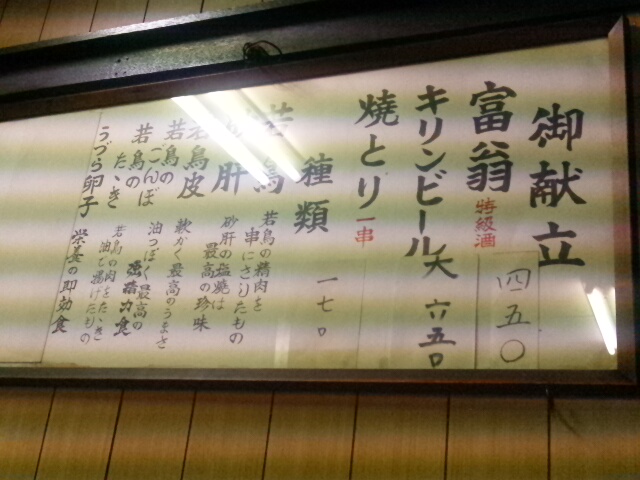 御献立
富翁 特級酒 四五〇
キリンビール大 六五〇
焼とり 一串
種類 一七〇
若鳥 若鳥の精肉を串にさしたもの
砂肝 砂肝の塩焼は最高の珍味
若鳥皮 軟かく最高のうまさ
若鳥のごんぼ 油っぽく最高の
若鳥のたゝき 若鳥の肉をたゝき油で揚げたもの
うづら卵子 栄養の即効食